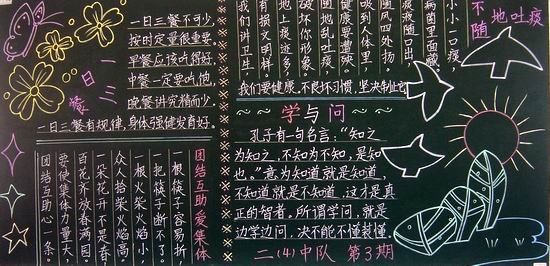 一日三餐
一日三餐不可少,
按时定量很重要.
早餐应该吃得好,
中餐一定要吃饱,
晚餐讲究精而少.
一日三餐有规律,身体强健发育好.
团结互助爱集体
一根筷子容易折,
一把筷子断不了.
一根火柴火焰小,
众人拾柴火焰高,
一朵花开不是春,
百花齐放春满园.
要使集体力量大,
团结互助心一条.
不随地吐痰
小小一口痰,
病菌里面藏.
痰液随口出,
随风四外扬.
吸到人体里,
健康要遭殃.
随地乱吐痰,
破坏你形象.
地上痰迹多,
有损文明样.
我们讲卫生,
我们要健康.不良坏习惯,坚决制止它.
~~学与问~~
孔子有一句名言:“知之
为知之,不知为不知,是知
也。”意为知道就是知道,
不知道就是不知道,这才是真
正的智者。所谓学问,就是
边学边问,决不能不懂装懂.
二(4)中队 第3期